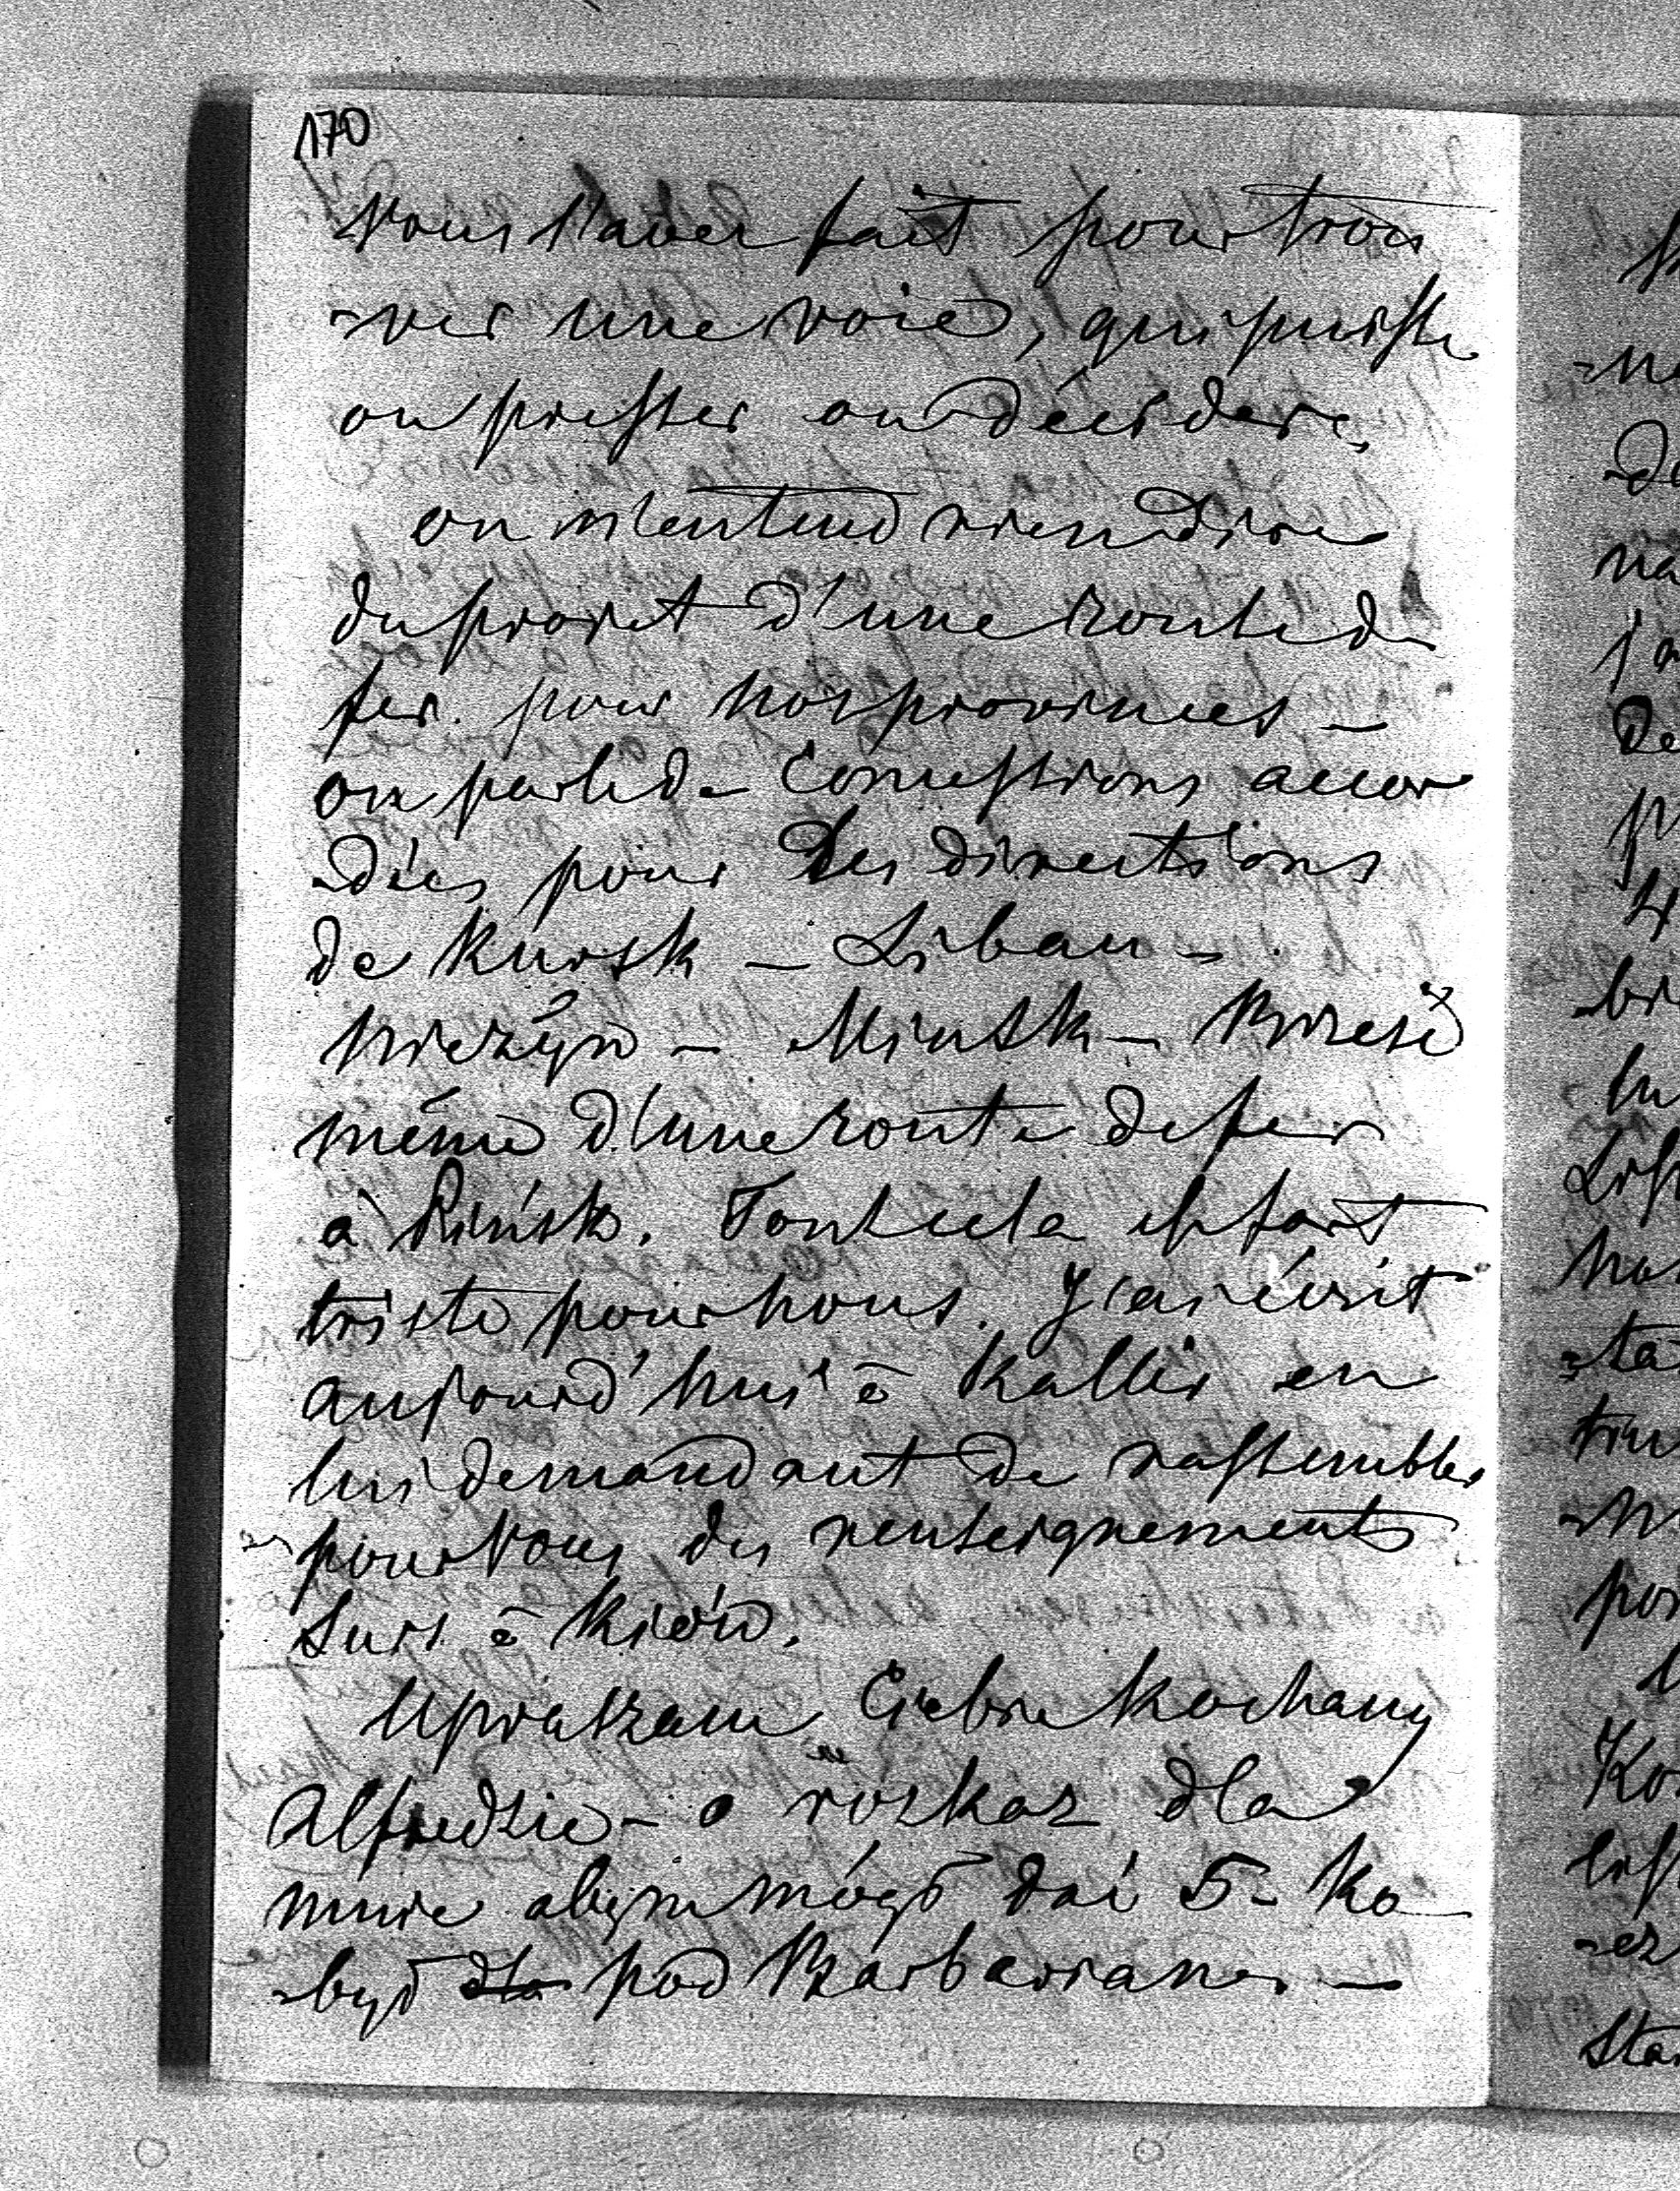 170
Vous l'avez fait pour trou
-ver une voie, qui puisse
ou presser ou décider
on n'entend rien dire
du projet d'une route de
fer pour nos provinces —
on parle de concessions accor
-dées pour les directions
de Kursk — Libau —
Nieżyn — Minsk — Brześć
même d'une route de fer
à Pińsk. Tout cela est fort
triste pour nous. J'ai écrit
aujourd'hui à Kaller en
lui demandant de rassembler
pour vous des renseignements
surs à Kiow.
Upraszam Ciebie kochany
Alfredzie — o rozkaz dla
mnie abym mógł dać 5 — ko
-był dla pod Barbariana —